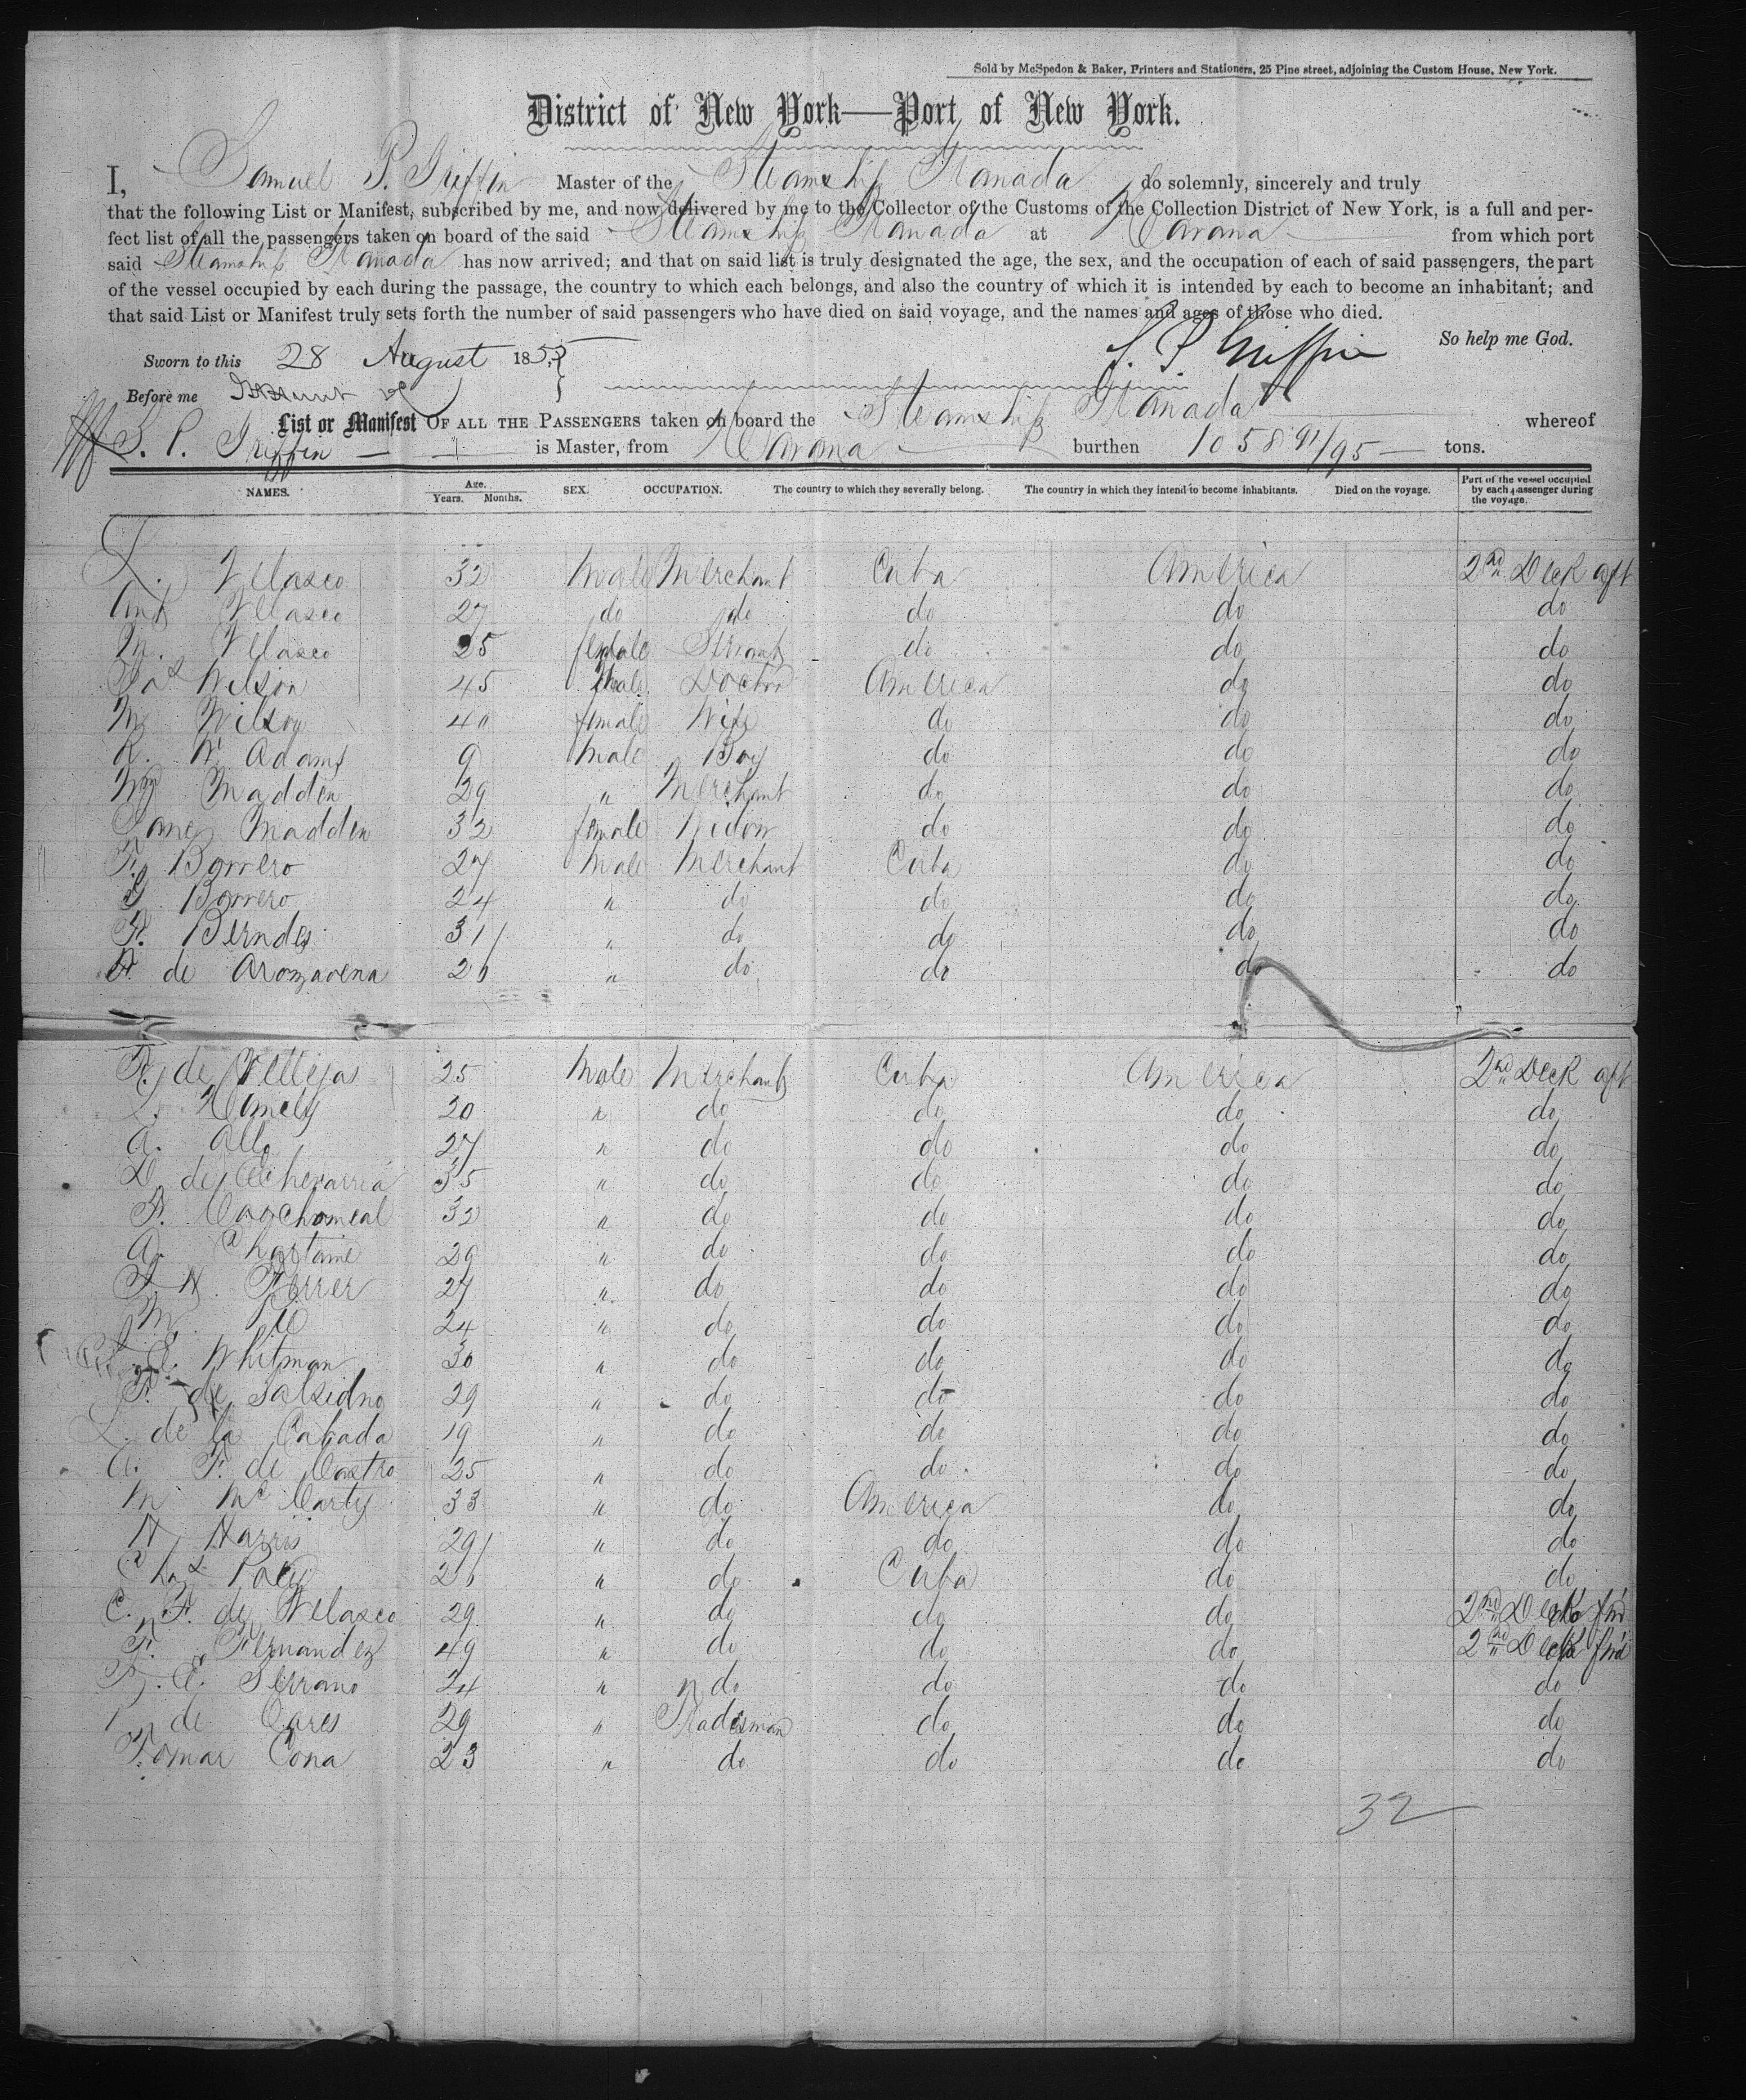 Sold by McSpedon & Baker, Printers and Stationers, 25 Pine street, adjoining the Custom House, New York.
District of New York—Port of New York.
I, Samuel P. Griffin Master of the Steamship Granada do solemnly, sincerely and truly
that the following List or Manifest, subscribed by me, and now delivered by me to the Collector of the Customs of the Collection District of New York, is a full and per-
fect list of all the passengers taken on board of the said Steamship Granada at Havana from which port
said Steamship Granada has now arrived; and that on said list is truly designated the age, the sex, and the occupation of each of said passengers, the part
of the vessel occupied by each during the passage, the country to which each belongs, and also the country of which it is intended by each to become an inhabitant; and
that said List or Manifest truly sets forth the number of said passengers who have died on said voyage, and the names and ages of those who died.
So help me God.
Sworn to this 28 August 185 S. P. Griffin
Before me
List or Manifest OF ALL THE PASSENGERS taken on board the Steamship Granada whereof
S. P. Griffin is Master, from Havana burthen 1058 91/95 tons.
NAMES. Age. Years. Months. SEX. OCCUPATION. The country to which they severally belong. The country in which they intend to become inhabitants. Died on the voyage. Part of the vessel occupied by each passenger during the voyage.
L. Velasco 32 Male Merchant Cuba America 2nd Deck aft
Ant Velasco 27 do do do do do
M. Velasco 25 female Servant do do do
Wilson 45 Male Doctor America do do
M Wilson 40 female Wife do do do
R. W. Adams 9 Male Boy do do do
Wm Madden 29 " Merchant do do do
Jane Madden 32 female Widow do do do
F. Borrero 27 Male Merchant Cuba do do
G Borrero 24 " do do do do
F. Berndes 31 " do do do do
A de Arozavena 26 " do do do do
F. de Villegas 25 Male Merchant Cuba America 2nd Deck aft
L. Himely 20 " do do do do
A. Allo 27 " do do do do
D de Echevarria 35 " do do do do
F. 32 " do do do do
A. Chastaine 29 " do do do do
Ferrer 27 " do do do do
M. 24 " do do do do
E. Whitman 30 " do do do do
F. de 29 " do do do do
L. de la Cahada 19 " do do do do
A. F. de Castro 25 " do do do do
M McCarty 33 " do America do do
H Harris 29 " do do do do
Chas 26 " do Cuba do do
C. F. de Velasco 29 " do do do 2nd Deck fwd
F. Fernandez 49 " do do do 2nd Deck fwd
E. Serrano 24 " do do do do
de Cares 29 " Tradesman do do do
Tomar Cona 23 " do do do do
32